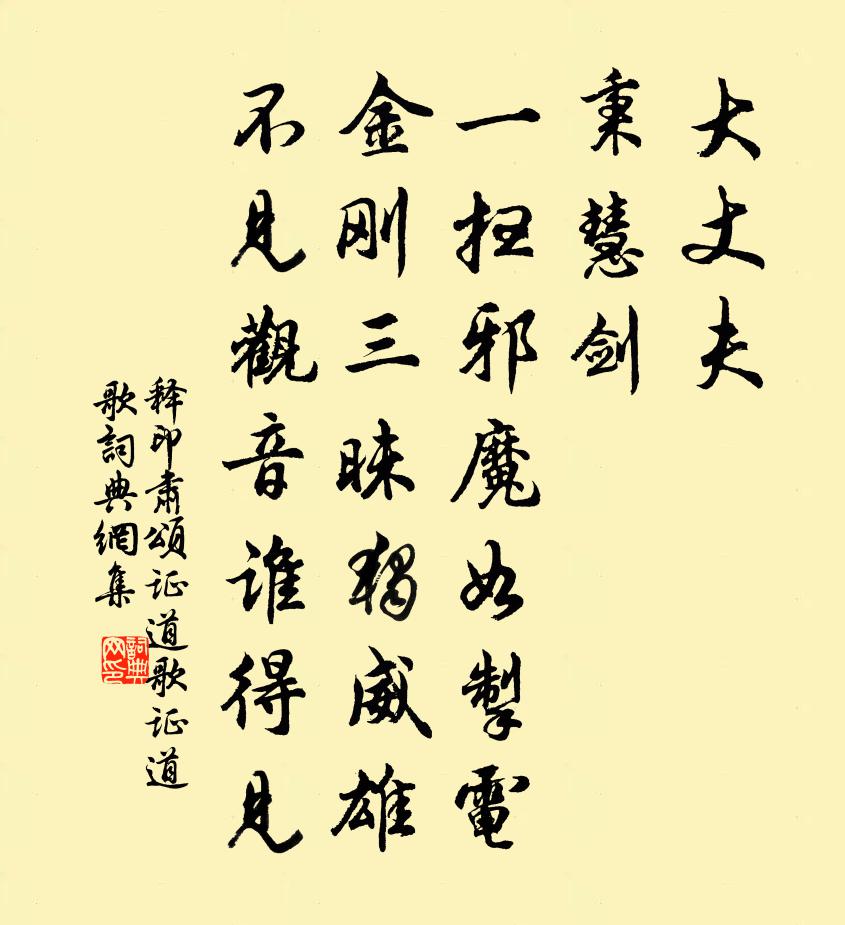 大丈夫
秉慧剑
一扫邪魔如掣電
金刚三昧獨威雄
不見觀音谁得見
释印肃頌证道歌证道
歌詞典網集
詞典
网印